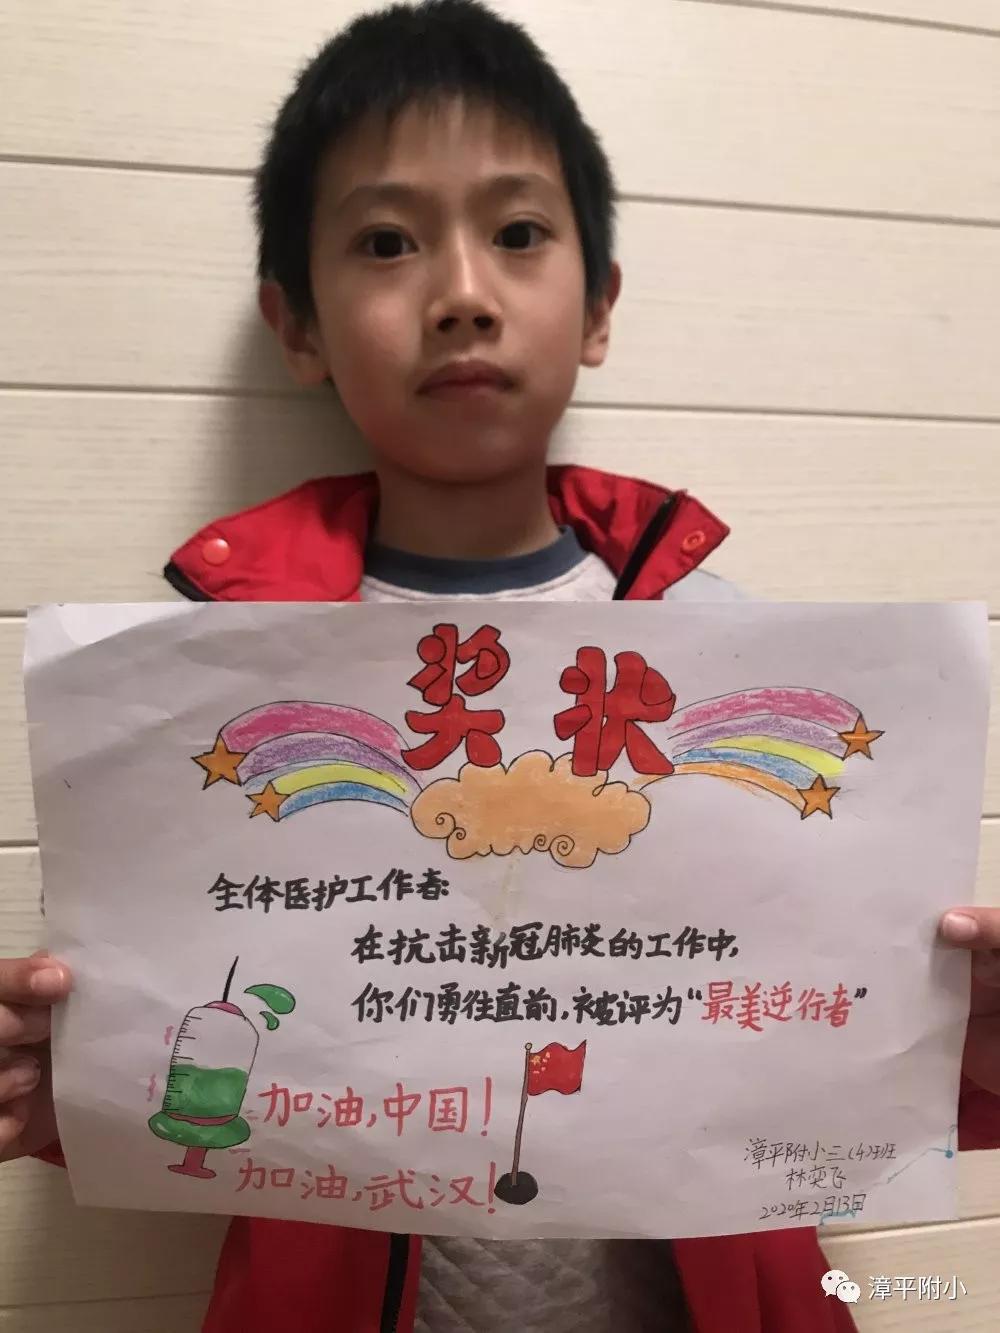 奖状
全体医护工作者:
在抗击新冠肺炎的工作中,
你们勇往直前,被评为“最美逆行者”
加油,中国!
加油,武汉!
漳平附小三(4)班
林奕飞
2020年2月13日
漳平附小